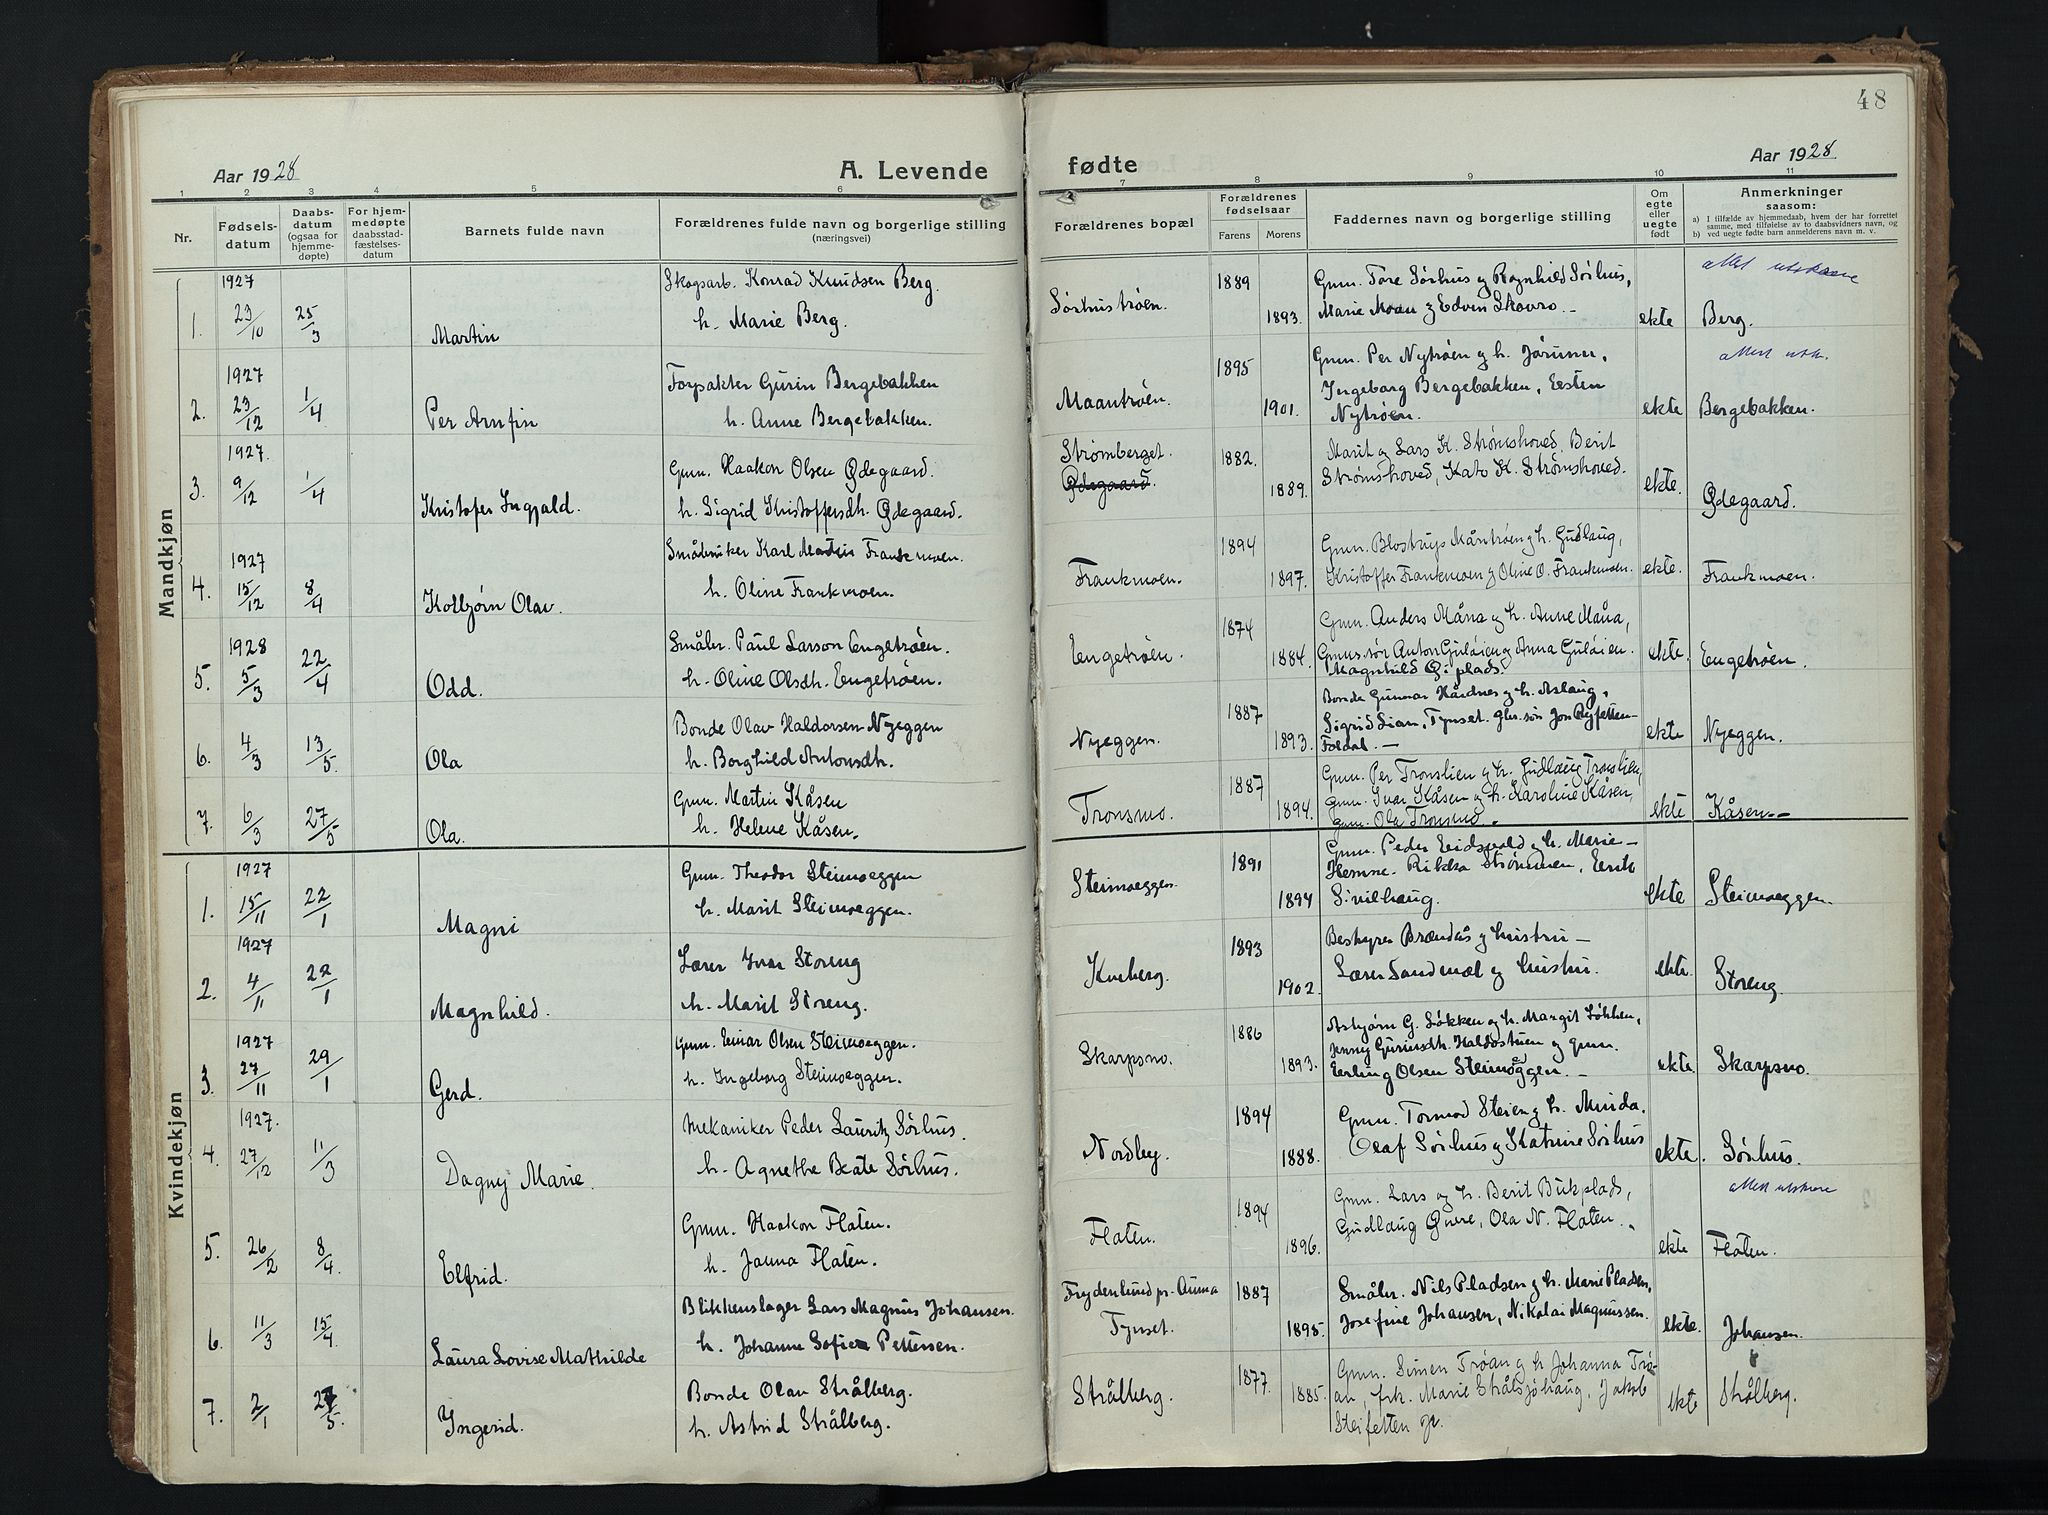 48
Aar 1928
A. Levende
fødte
Aar 1928
1 2 3 4 5 6 7 8 9 10 11
Nr.
Fødsels-
datum
Daabs-
datum
(ogsaa for
hjemme-
døpte)
For hjem-
medøpte
daabsstad-
fæstelses-
datum
Barnets fulde navn
Forældrenes fulde navn og borgerlige stilling
(næringsvei)
Forældrenes bopæl
Forældrenes
fødselsaar
Farens
Morens
Faddernes navn og borgerlige stilling
Om
egte
eller
uegte
født
Anmerkninger
saasom:
a) I tilfælde av hjemmedaab, hvem der har forrettet
samme, med tilføielse av to daabsvidners navn, og
b) ved uegte fødte barn anmelderens navn m. v.
Mandkjøn
1927
1. 23/10 25/3 Martin
Skogsarb. Konrad Knudsen Berg.
h. Marie Berg.
Sørhustrøen.
1889
1893.
Gmn. Tore Sørhus og Ragnhild Sørhus,
Marie Moan og Edvin Skovro. -
ekte
Berg.
attest utskrevne
1927
2. 23/12 1/4 Per Arnfin
Forpakter Gurin Bergebakken
h. Anne Bergebakken.
Maantrøen.
1895
1901.
Gmn. Per Nytrøen og h. Jørunn,
Ingeborg Bergebakken, Eesten
Nytrøen.
ekte
Bergebakken.
attest utsk.
1927.
3. 9/12 1/4 Kristofer Ingjald.
Gmn. Haakon Olsen Ødegaard.
h. Sigrid Kristoffersdh. Ødegaard.
Strømberget.
Ødegaard.
1882.
1889.
Marit og Lars K. Strømshoved, Berit
Strømshoved, Kato K. Strømshoved.
ekte.
Ødegaard.
1927
4. 15/12 8/4 Kolbjørn Olav.
Småbruker Karl Martin Frankmoen.
h. Oline Frankmoen.
Frankmoen.
1894
1897.
Gmn. Måntrøen og h. Gudlaug,
Kristoffer Frankmoen og Oline O. Frankmoen.
ekte.
Frankmoen.
1928
5. 5/3 22/4 Odd.
Småbr. Paul Larson Engetrøen.
h. Oline Olsdh. Engetrøen.
Engetrøen.
1874
1884.
Gmn. Anders Måna og h. Anne Måna,
Gmns.søn Anton Guløien og Anna Guløien.
Magnhild
ekte.
Engetrøen.
6. 4/3 13/5. Ola
Bonde Olav Haldorsen Nyeggen
h. Borghild Antonsdh.
Nyeggen.
1887
1893.
Bonde Gunnar Hårdnes og h. Aslaug,
Sigrid Lian, Tynset. gbr. søn Jon
Foldal. -
ekte
Nyeggen.
7. 6/3 27/5 Ola.
Gmn. Martin Kåsen
h. Helene Kåsen.
Tronsmo.
1887
1894.
Gmn. Per Tronslien og h. Gudlaug Tronslien,
gmn. Ivar Kåsen og h. Karoline Kåsen,
gmn. Ola Tronsmo.
ekte
Kåsen.-
Kvindekjøn
1927
1. 15/11 22/1 Magni
Gmn. Theodor Steimoeggen
h. Marit Steimoeggen.
Steimoeggen.
1891
1894
Gmn. Peder Eidsvold og h. Marie -
Hemne. Rikka Strømmen, Eerik
Sivilhaug.
ekte
Steimoeggen.
1927
2. 4/11 22/1 Magnhild.
Lærer Ivar Storeng
h. Marit Storeng.
Kveberg.
1893
1902.
Bestyrer Brændås og hustru -
Lærer Sandmæl og hustru.
ekte.
Storeng.
1927
3. 27/11 29/1 Gerd.
Gmn. Einar Olsen Steimoeggen.
h. Ingeborg Steimoeggen.
Skarpsno.
1886
1893.
Asbjørn G. Løkken og h. Margit Løkken,
Jenny Gurinsdh. Haldostuen og gmn.
Eerling Olsen Steimoeggen. -
ekte.
Skarpsno.
1927.
4. 27/12 11/3 Dagny Marie.
Mekaniker Peder Lauritz Sørhus.
h. Agnethe Beate Sørhus.
Nordby.
1894
1888.
Gmn. Tormod Steien og h. Minda.
Olaf Sørhus og Katrine Sørhus
ekte.
Sørhus.
5. 26/2 8/4. Elfrid.
Gmn. Haakon Flaten.
h. Janna Flaten.
Flaten.
1894
1896.
Gmn. Lars og h. Berit Bukplads,
Gudlaug Øvere, Ola N. Flaten.
ekte
Flaten.
attest utskrevne
6. 11/3 15/4. Laura Lovise Mathilde
Blikkenslager Lars Magnus Johansen.
h. Johanne Sofie Pettersen.
Frydenlund pr. Auma
Tynset.
1887
1895.
Småbr. Nils Pladsen og h. Marie Pladsen,
Josefine Johansen, Nikolai Magnussen.
ekte.
Johansen.
7. 2/1 27/5. Ingerid.
Bonde Olav Strålberg.
h. Astrid Strålberg.
Strålberg.
1877.
1885.
Gmn. Simen Trøan og h. Johanna Trø-
an, frk. Marie Strålsjøhaug, Jakob
Steifetten jr.
ekte
Strålberg.